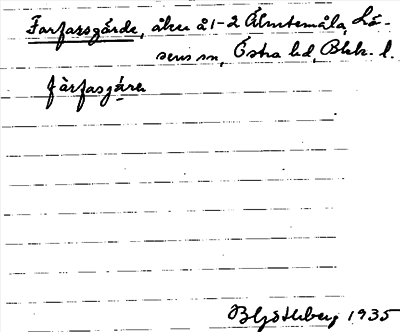 Farfarsgärde, åker å 1-2 Älmtemåla, Lö-
sens sn, Östra hd, Blek. l.
fàrfasgá̤ra
B Götlberg 1935